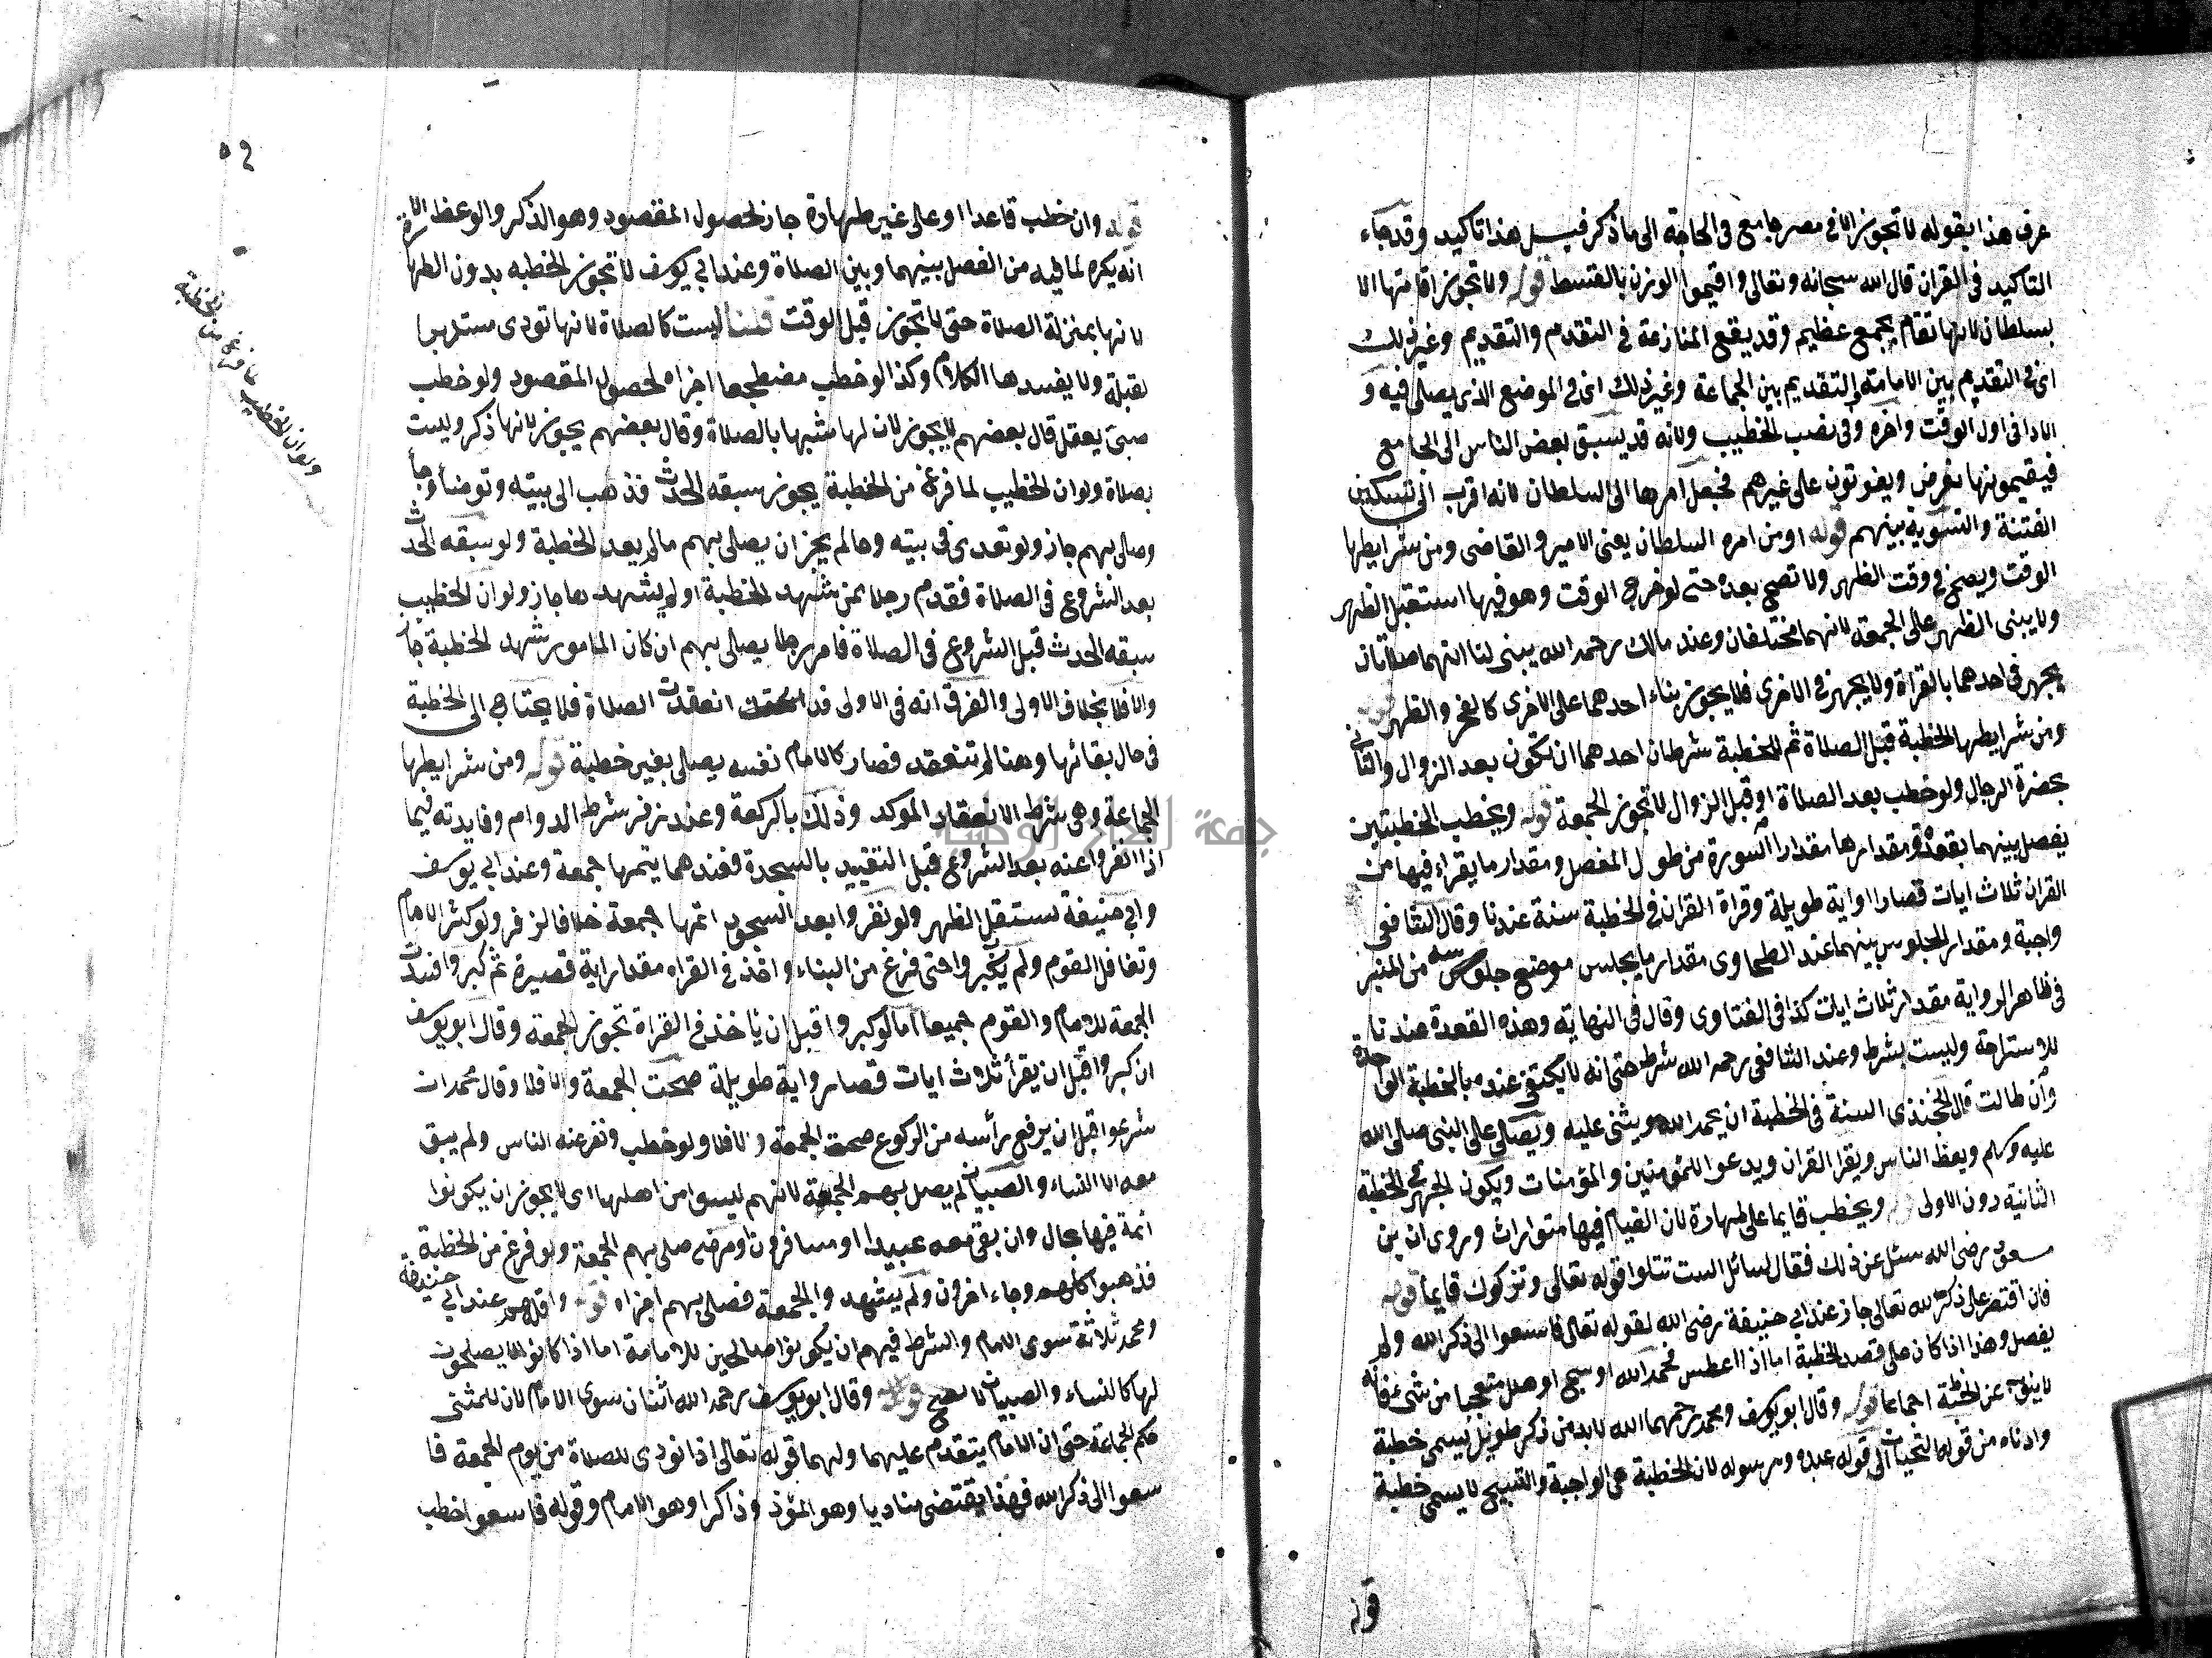 عرف هذا بقوله لا تجوز الا في مصر جامع في الحاجة الى ما ذكر قبل هذا تاكيد وقد جاء
التاكيد في القران قال الله سبحانه وتعالى واقيموا الوزن بالقسط قوله ولا تجوز اقامتها الا
بسلطان لانها تقام بجمع عظيم وقد يقع المنازعة في التقدم والتقديم وغير ذلك
اى في التقدم بين الامامة والتقديم بين الجماعة وغير ذلك اى في الموضع الذى يصلى فيه و
الادا في اول الوقت واخره وفى نصب الخطيب ولانه قد يسبق بعض الناس الى الجامع
فيقيمونها لغرض ويفوتون على غيرهم فجعل امرها الى السلطان لانه اقرب الى تسكين
الفتنة والتسوية بينهم قوله او من امره السلطان يعنى الامير والقاضى ومن شرايطها
الوقت ويصح في وقت الظهر ولا تصح بعده حتى لو خرج الوقت وهو فيها استقبل الظهر
ولا يبنى الظهر على الجمعة لانهما مختلفان وعند مالك رحمه الله يبنى لنا انهما صلاتان
يجهر فى احدهما بالقراة ولا يجهر في الاخرى فلا يجوز بناء احدهما على الاخرى كالفجر والظهر قوله
ومن شرايطها الخطبة قبل الصلاة ثم للخطبة شرطان احدهما ان تكون بعد الزوال والثانى
بحضرة الرجال ولو خطب بعد الصلاة او قبل الزوال لا تجوز الجمعة قوله ويخطب الخطبتين
يفصل بينهما بقعدة ومقدارها مقدار السورة من طول المفصل ومقدار ما يقراء فيها من
القران ثلاث ايات قصار او اية طويلة وقراة القران في الخطبة سنة عندنا وقال الشافعى
واجبة ومقدار الجلوس بينهما عند الطحاوى مقدار ما يجلس موضع جلوسه من المنبر
في ظاهر الرواية مقدار ثلاث ايات كذا في الفتاوى وقال في النهاية وهذه القعدة عندنا
للاستراحة وليست بشرط وعند الشافعى رحمه الله شرط حتى انه لا يكتفى عنده بالخطبة الواحدة
وان طالت قال الخجندى السنة في الخطبة ان يحمد الله ويثنى عليه ويصلى على النبى صلى الله
عليه وسلم ويعظ الناس ويقرا القران ويدعوا للمؤمنين والمؤمنات ويكون الجهر في الخطبة
الثانية دون الاولى قوله ويخطب قايما على طهارة لان القيام فيها متوارث وروى ان بن
مسعود رضى الله سئل عن ذلك فقال لسائل الست تتلوا قوله تعالى وتركوك قايما قوله
فان اقتصر على ذكر الله تعالى جاز عند ابي حنيفة رضى الله لقوله تعالى فاسعوا الى ذكر الله ولم
يفصل وهذا اذا كان على قصد الخطبة اما اذا اعطس فحمد الله او سبح او هلل متعجبا من شى فانه
لا ينوب عن الخطبة اجماعا قوله وقال ابو يوسف ومحمد رحمهما الله لا بد من ذكر طويل يسمى خطبة
وادناه من قوله التحيات الى قوله عبده ورسوله لان الخطبة هي الواجبة والتسبيح لا يسمى خطبة
قوله
٥٩
قوله وان خطب قاعدا او على غير طهارة جاز لحصول المقصود وهو الذكر والوعظ الا
انه يكره لما فيه من الفصل بينهما وبين الصلاة وعند ابي يوسف لا تجوز الخطبه بدون الطهارة
لانها بمنزلة الصلاة حتى لا تجوز قبل الوقت قلنا ليست كالصلاة لانها تودى مستدبرا
لقبلة ولا يفسدها الكلام وكذا لو خطب مضطجعا اجزاه لحصول المقصود ولو خطب
صبى يعقل قال بعضهم لا يجوز لان لها شبها بالصلاة وقال بعضهم يجوز لانها ذكر وليست
بصلاة ولو ان الخطيب لما فرغ من الخطبة يجوز سبقه الحدث فذهب الى بيته وتوضأ وجاء
وصلى بهم جاز ولو تغدى في بيته وحالم يجز ان يصلى بهم ما لم يعد الخطبة ولو سبقه الحدث
بعد الشروع في الصلاة فقدم رجلا ممن شهد الخطبة او لم يشهدها جاز ولو ان الخطيب
سبقه الحدث قبل الشروع في الصلاة فامر رجلا يصلى بهم ان كان المامور شهد الخطبة جاز
والا فلا بخلاف الاولى والفرق انه في الاولى قد انعقدت الصلاة فلا يحتاج الى الخطبة
في حال بقائها وهنا لم تنعقد فصار كالامام نفسه يصلى بغير خطبة قوله ومن شرايطها
الجماعة وهى شرط الانعقاد الموكد وذلك بالركعة وعند زفر شرط الدوام وفايدته فيما
اذا انفروا عنه بعد الشروع قبل التقييد بالسجدة فعندهما يتمها جمعة وعند ابي يوسف
وابي حنيفة يستقبل الظهر ولو نفروا بعد السجود اتمها جمعة خلافا لزفر ولو كبر الامام
وتغافل القوم ولم يكبروا حتى فرغ من الثناء واخذ في القراه مقدار اية قصيرة ثم كبروا فسدت
الجمعة للامام والقوم جميعا اما لو كبروا قبل ان ياخذ في القراة تجوز الجمعة وقال ابو يوسف
ان كبروا قبل ان يقرأ ثلاث ايات قصار واية طويلة صحت الجمعة والا فلا وقال محمد ان
شرعوا قبل ان يرفع رأسه من الركوع صحت الجمعة والا فلا ولو خطب ونفر عنه الناس ولم يبق
معه الا النساء والصبيان لم يصل بهم الجمعة لانهم ليسوا من اهلها اى لا يجوز ان يكونوا
ائمة فيها بحال وان بقى معه عبيدا او مسافرون ومرضى صلى بهم الجمعة ولو فرغ من الخطبة
فذهبوا كلهم وجاء اخرون ولم يشهدوا الجمعة فصلى بهم اجزاه قوله واقلهم عند ابي حنيفة
ومحمد ثلاثة سوى الامام والشرط فيهم ان يكونوا صالحين للامامة اما اذا كانوا لا يصلحون
لها كالنساء والصبيان لا تصح قوله وقال ابو يوسف رحمه الله اثنان سوى الامام لان للمثنى
حكم الجماعة حتى ان الامام يتقدم عليهما ولهما قوله تعالى اذا نودى للصلاة من يوم الجمعة فا
سعوا الى ذكر الله فهذا يقتضى مناديا وهو المؤذ وذاكرا وهو الامام وقوله فاسعوا خطب
ولو ان الخطيب لما فرغ من الخطبة